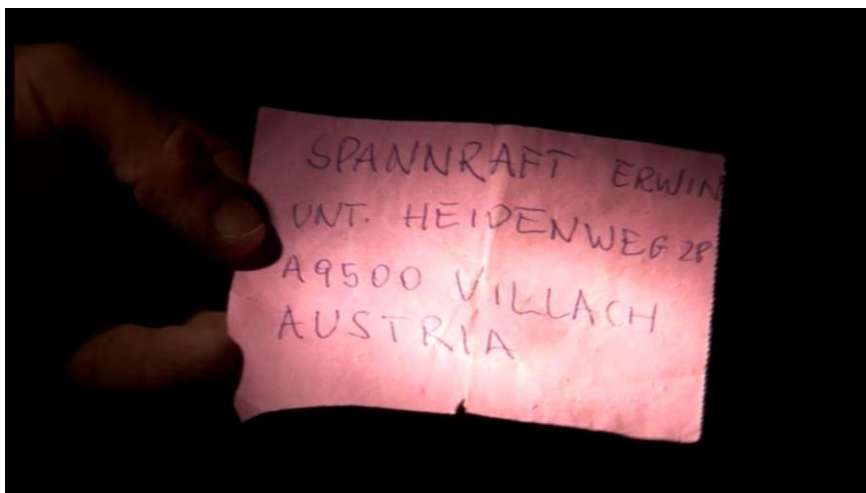 SPANNRAFT ERWIN
UNT. HEIDENWEG 28
A9500 VILLACH
AUSTRIA